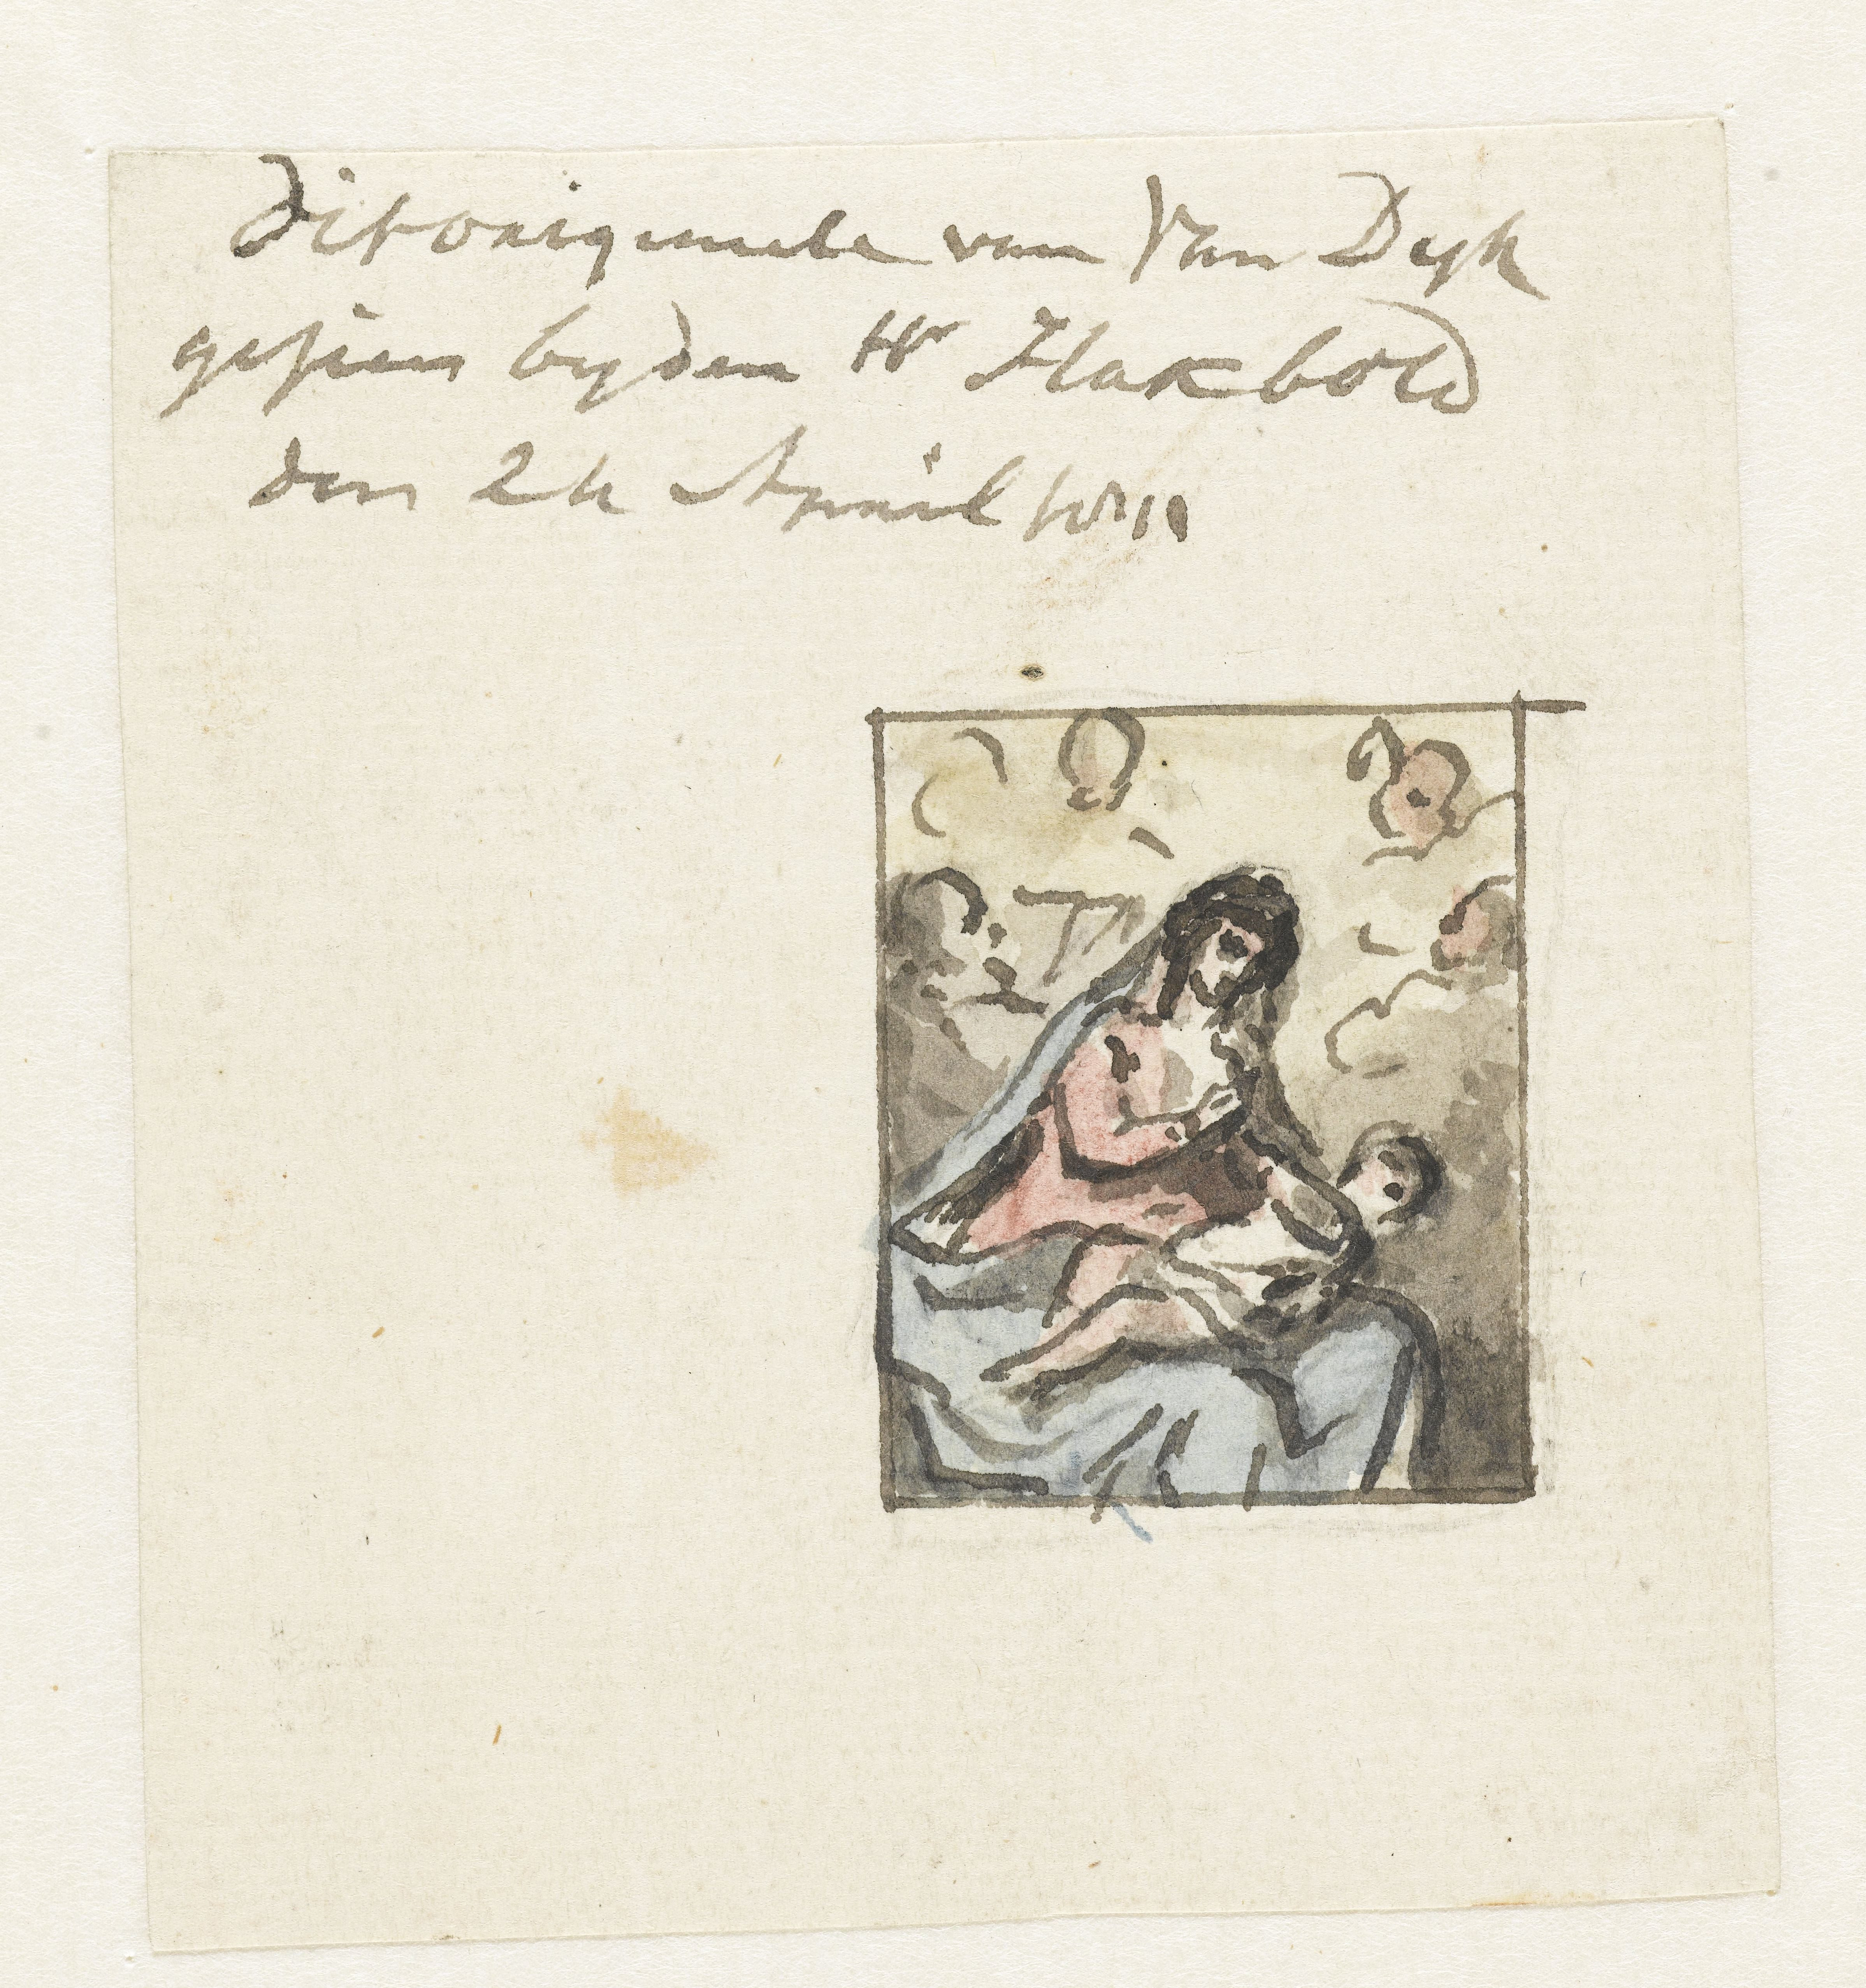 Dit originele van Van Dyk
gesien by den Hr Hakbold
den 24 April 1811